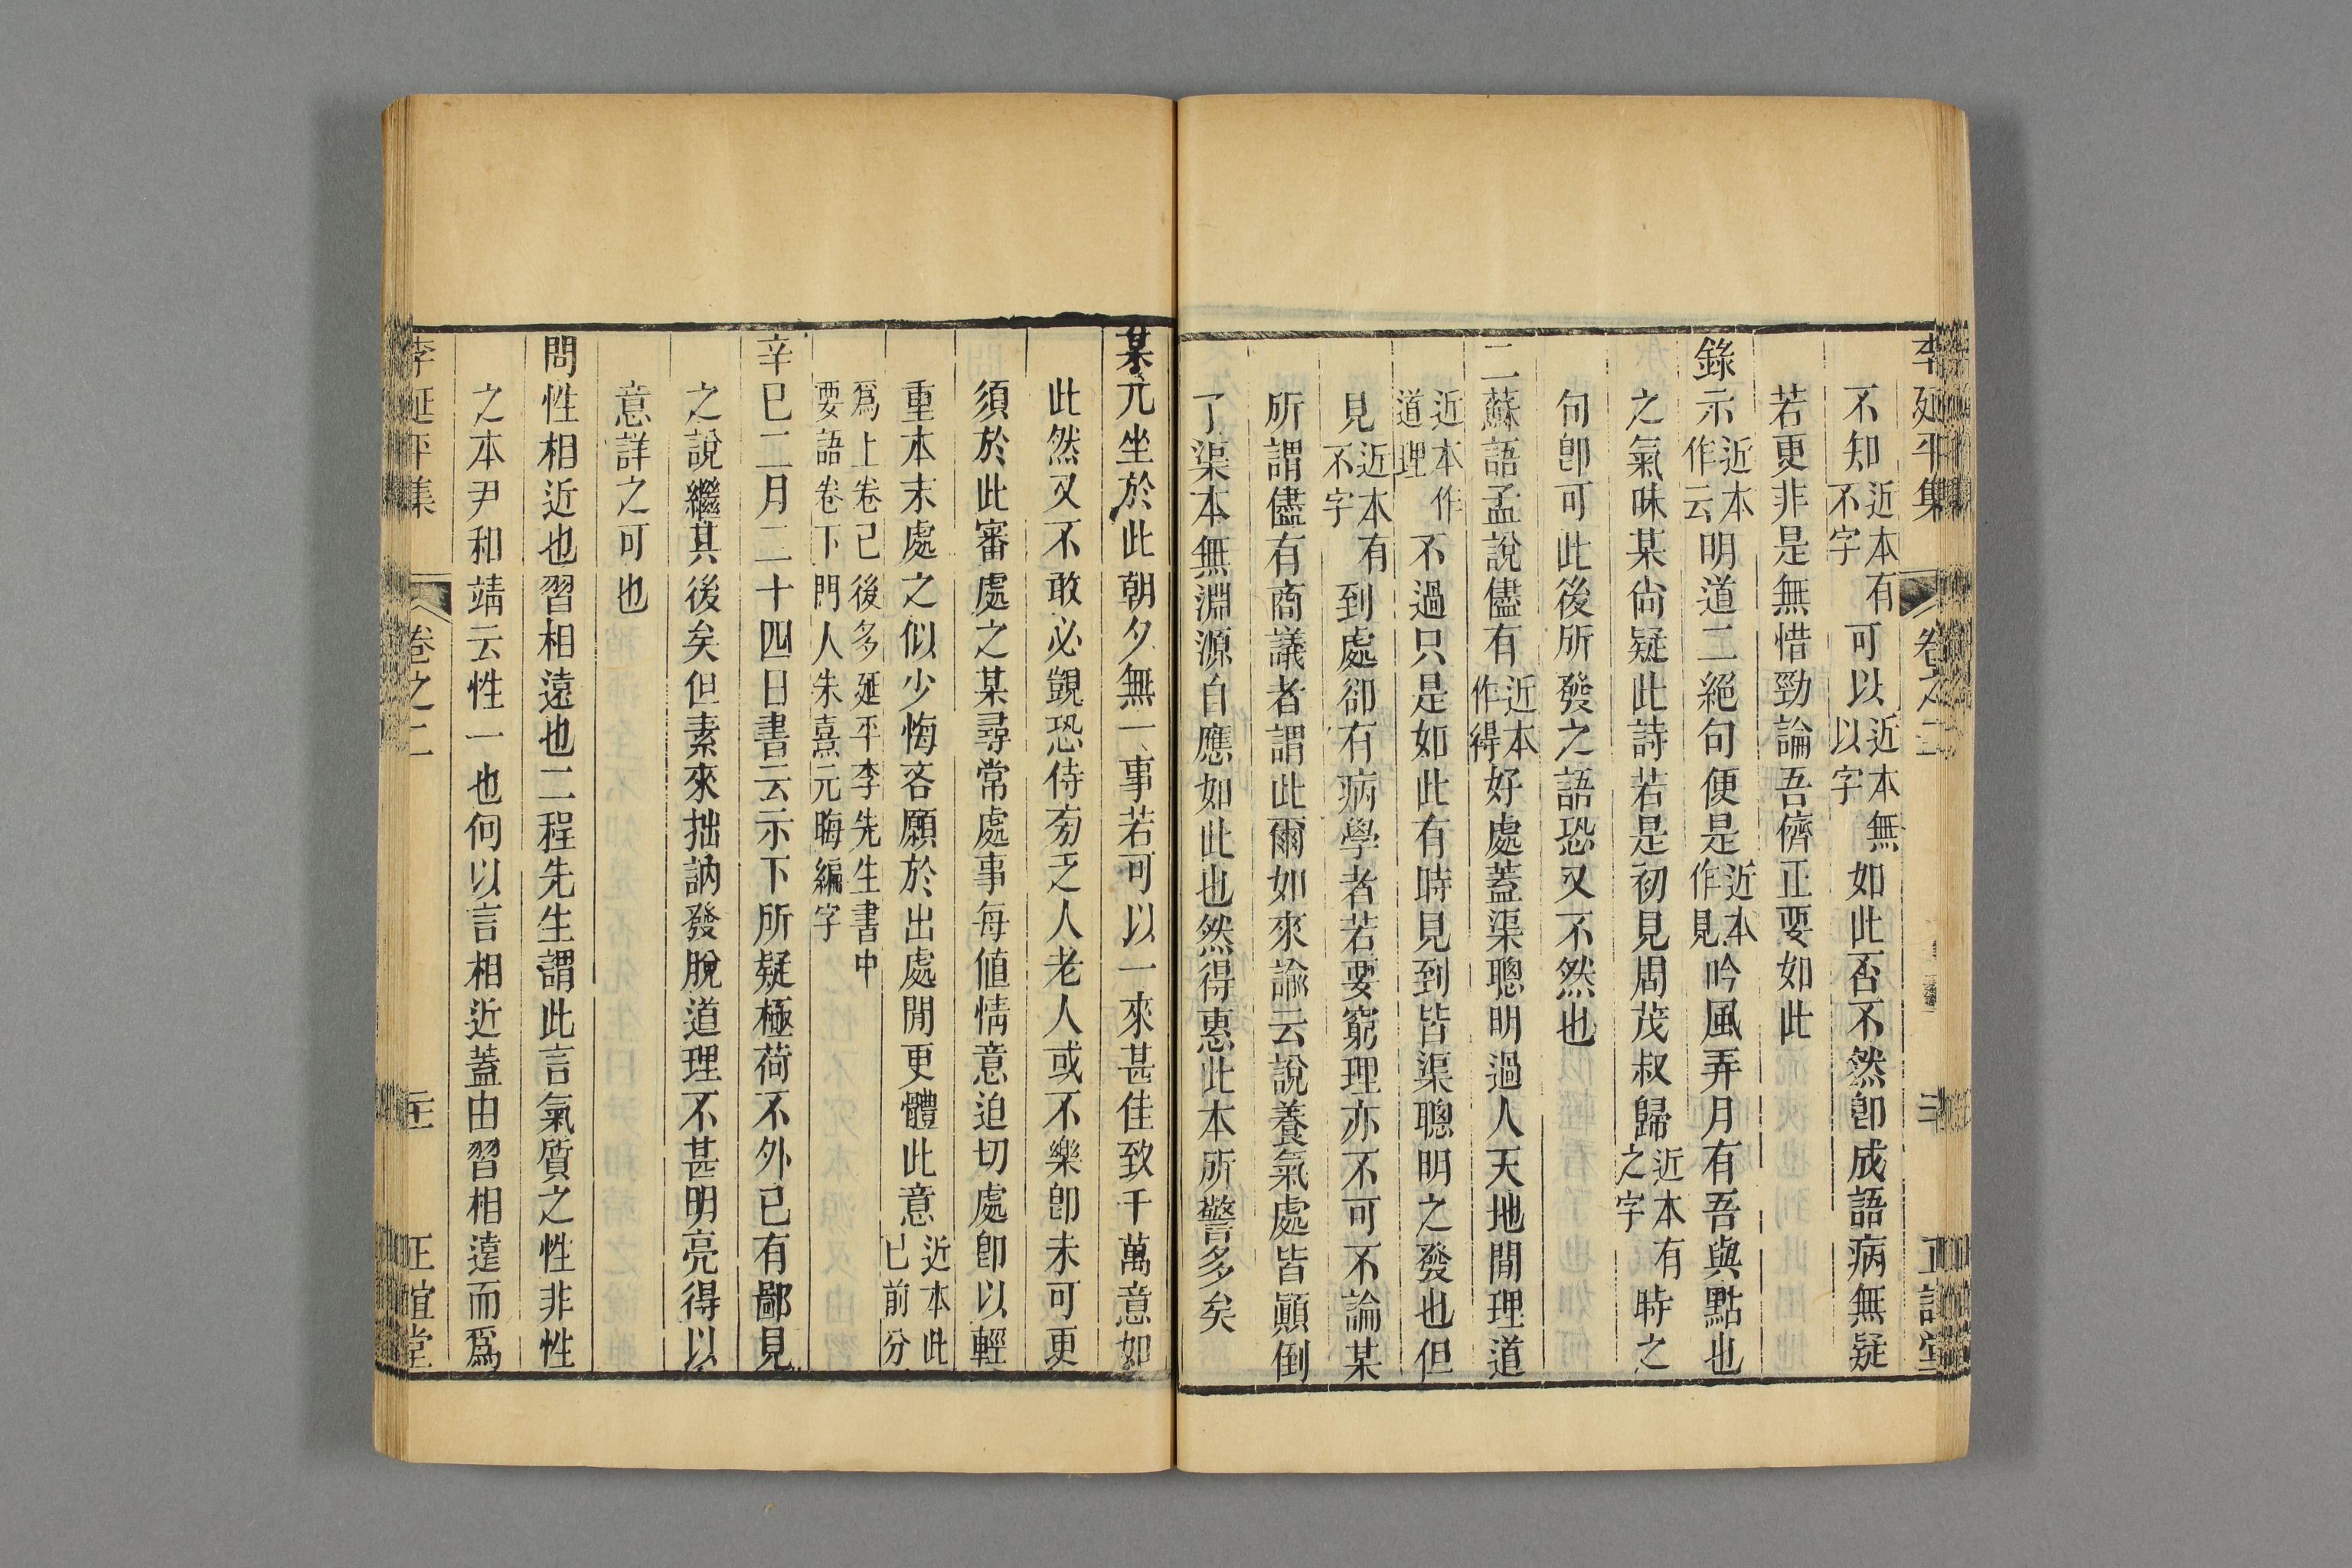 李延平集 卷之二 正誼堂
不知近本有不字可以近本無以字如此否不然卽成語病無疑
若更非是無惜勁論吾儕正要如此
錄示近本作云明道二絕句便是近本作見吟風弄月有吾與點也
之氣味某尙疑此詩若是初見周茂叔歸近本有之字時之
句卽可此後所發之語恐又不然也
二蘇語孟說儘有近本作得好處蓋渠聰明過人天地間理道
近本作道理不過只是如此有時見到皆渠聰明之發也但
見近本有不字到處卻有病學者若要窮理亦不可不論某
所謂儘有商議者謂此爾如來諭云說養氣處皆顚倒
了渠本無淵源自應如此也然得惠此本所警多矣
某兀坐於此朝夕無一事若可以一來甚佳致千萬意如
此然又不敢必覬恐侍旁乏人老人或不樂卽未可更
須於此審處之某尋常處事每値情意迫切處卽以輕
重本末處之似少悔吝願於出處間更體此意近本此已前分
爲上卷已後多延平李先生書中要語卷下門人朱熹元晦編字
辛巳二月二十四日書云示下所疑極荷不外已有鄙見
之說繼其後矣但素來拙訥發脫道理不甚明亮得以
意詳之可也
問性相近也習相遠也二程先生謂此言氣質之性非性
之本尹和靖云性一也何以言相近蓋由習相遠而爲
李延平集 卷之二 正誼堂